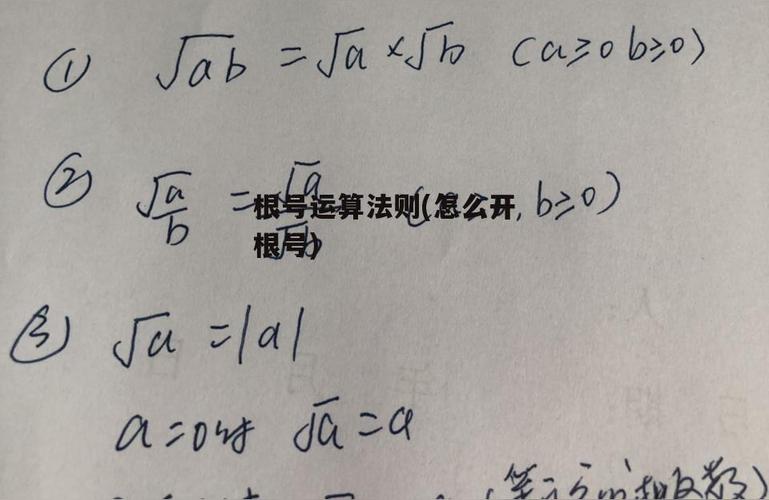 ① √ab = √a × √b (a≥0 b≥0)
② √a/b = √a/√b , b≥0)
根号运算法则(怎么开
根号)
③ √a = |a|
a=0时 √a = a